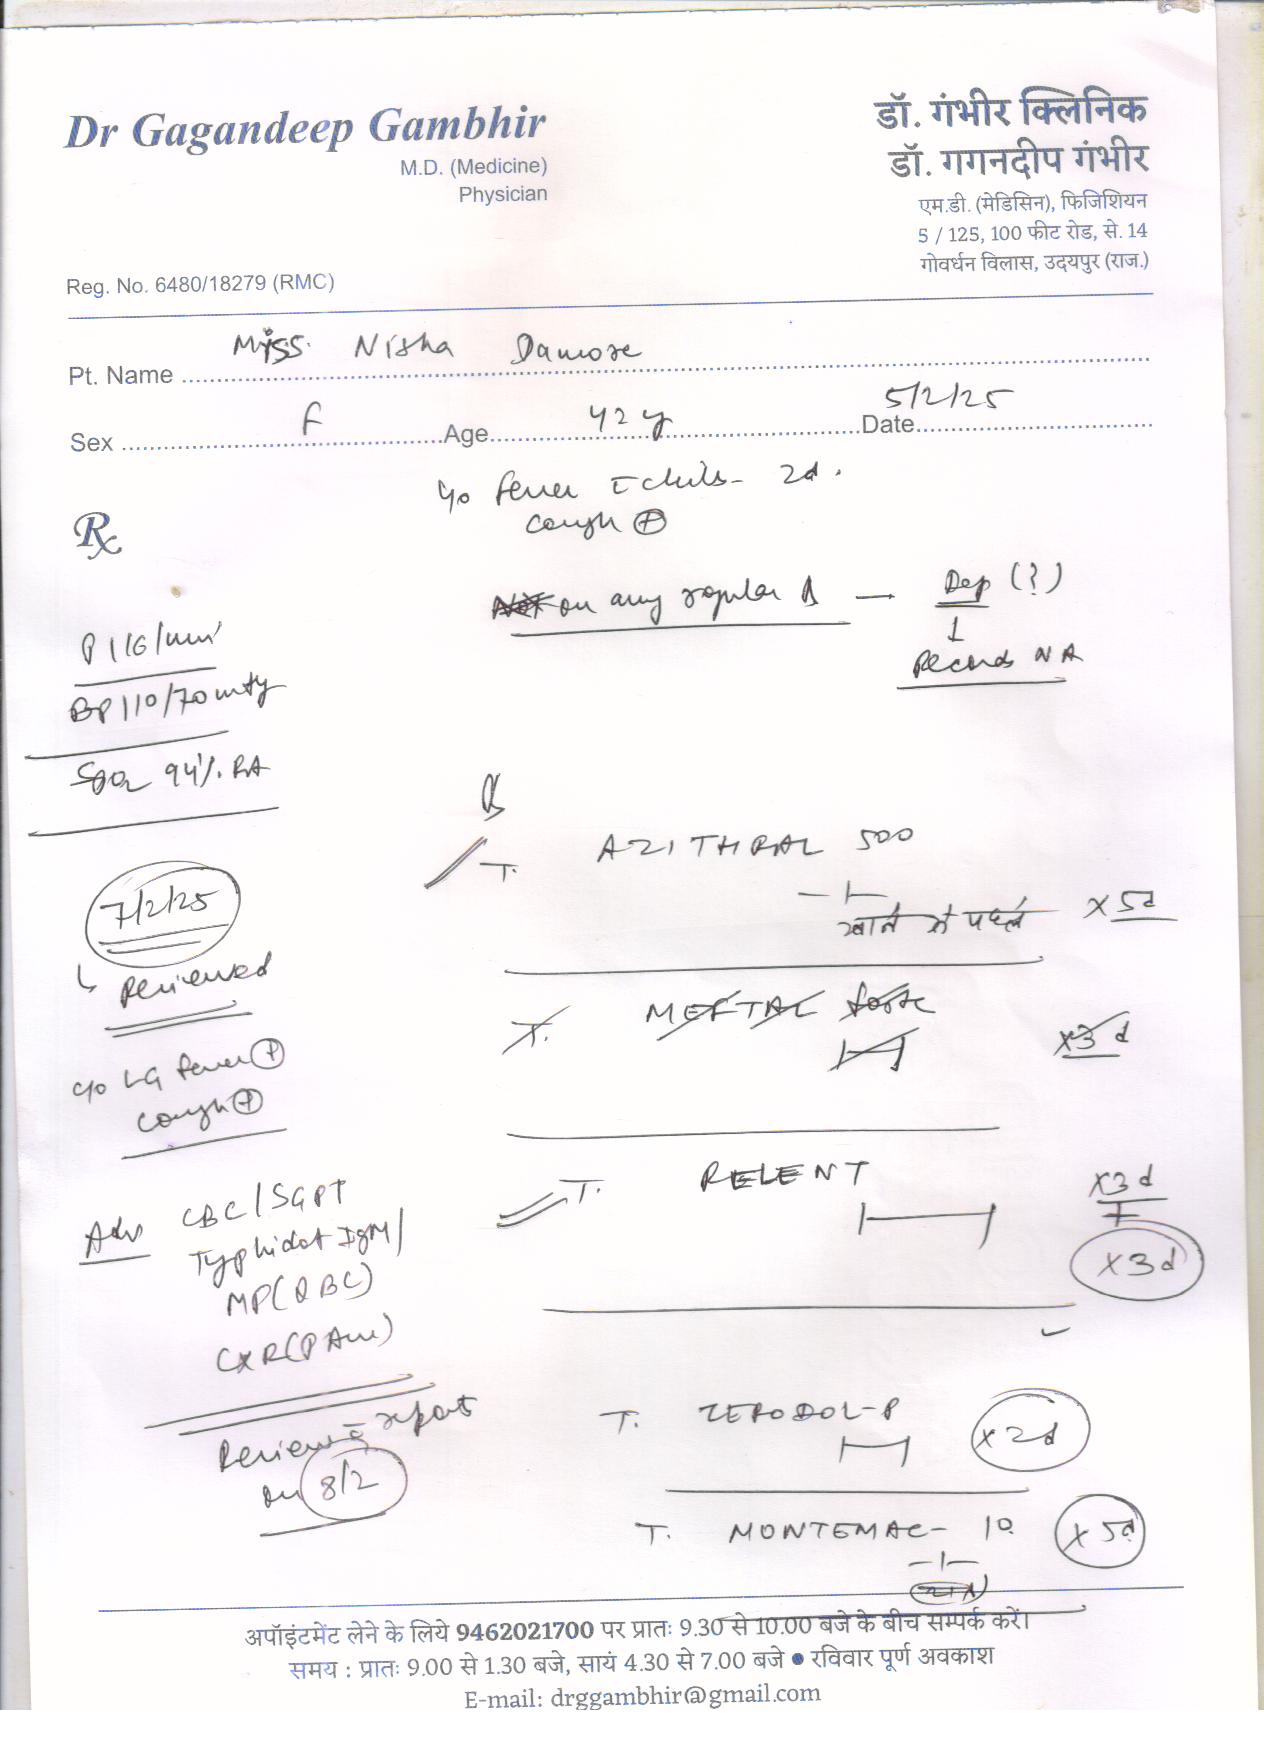 Dr Gagandeep Gambhir
M.D. (Medicine)
Physician
Reg. No. 6480/18279 (RMC)
डॉ. गंभीर क्लिनिक
डॉ. गगनदीप गंभीर
एम.डी. (मेडिसिन), फिजिशियन
5 / 125, 100 फीट रोड, से. 14
गोवर्धन विलास, उदयपुर (राज.)
Pt. Name Miss. Nisha Damore
Sex F Age 42 y Date 5/2/25
c/o fever c chills - 2d.
cough +
Rx
on any regular Rx — Dep (?)
↓
Records NA
P 116/min
BP 110/70 mmHg
SpO2 94% RA
Rx
T. AZITHRAL 500
खाने से पहले x 5d
T. MEFTAL forte x3d
T. RELENT x3d
x3d
T. ZERODOL-P x2d
T. MONTEMAC - 10 x 5d
7/2/25
Reviewed
c/o LG fever +
cough +
Adv CBC/SGPT
Typhidot IgM/
MP(QBC)
CXR(PA view)
Review c report
on 8/2
अपॉइंटमेंट लेने के लिये 9462021700 पर प्रातः 9.30 से 10.00 बजे के बीच सम्पर्क करें।
समय : प्रातः 9.00 से 1.30 बजे, सायं 4.30 से 7.00 बजे ● रविवार पूर्ण अवकाश
E-mail: drggambhir@gmail.com